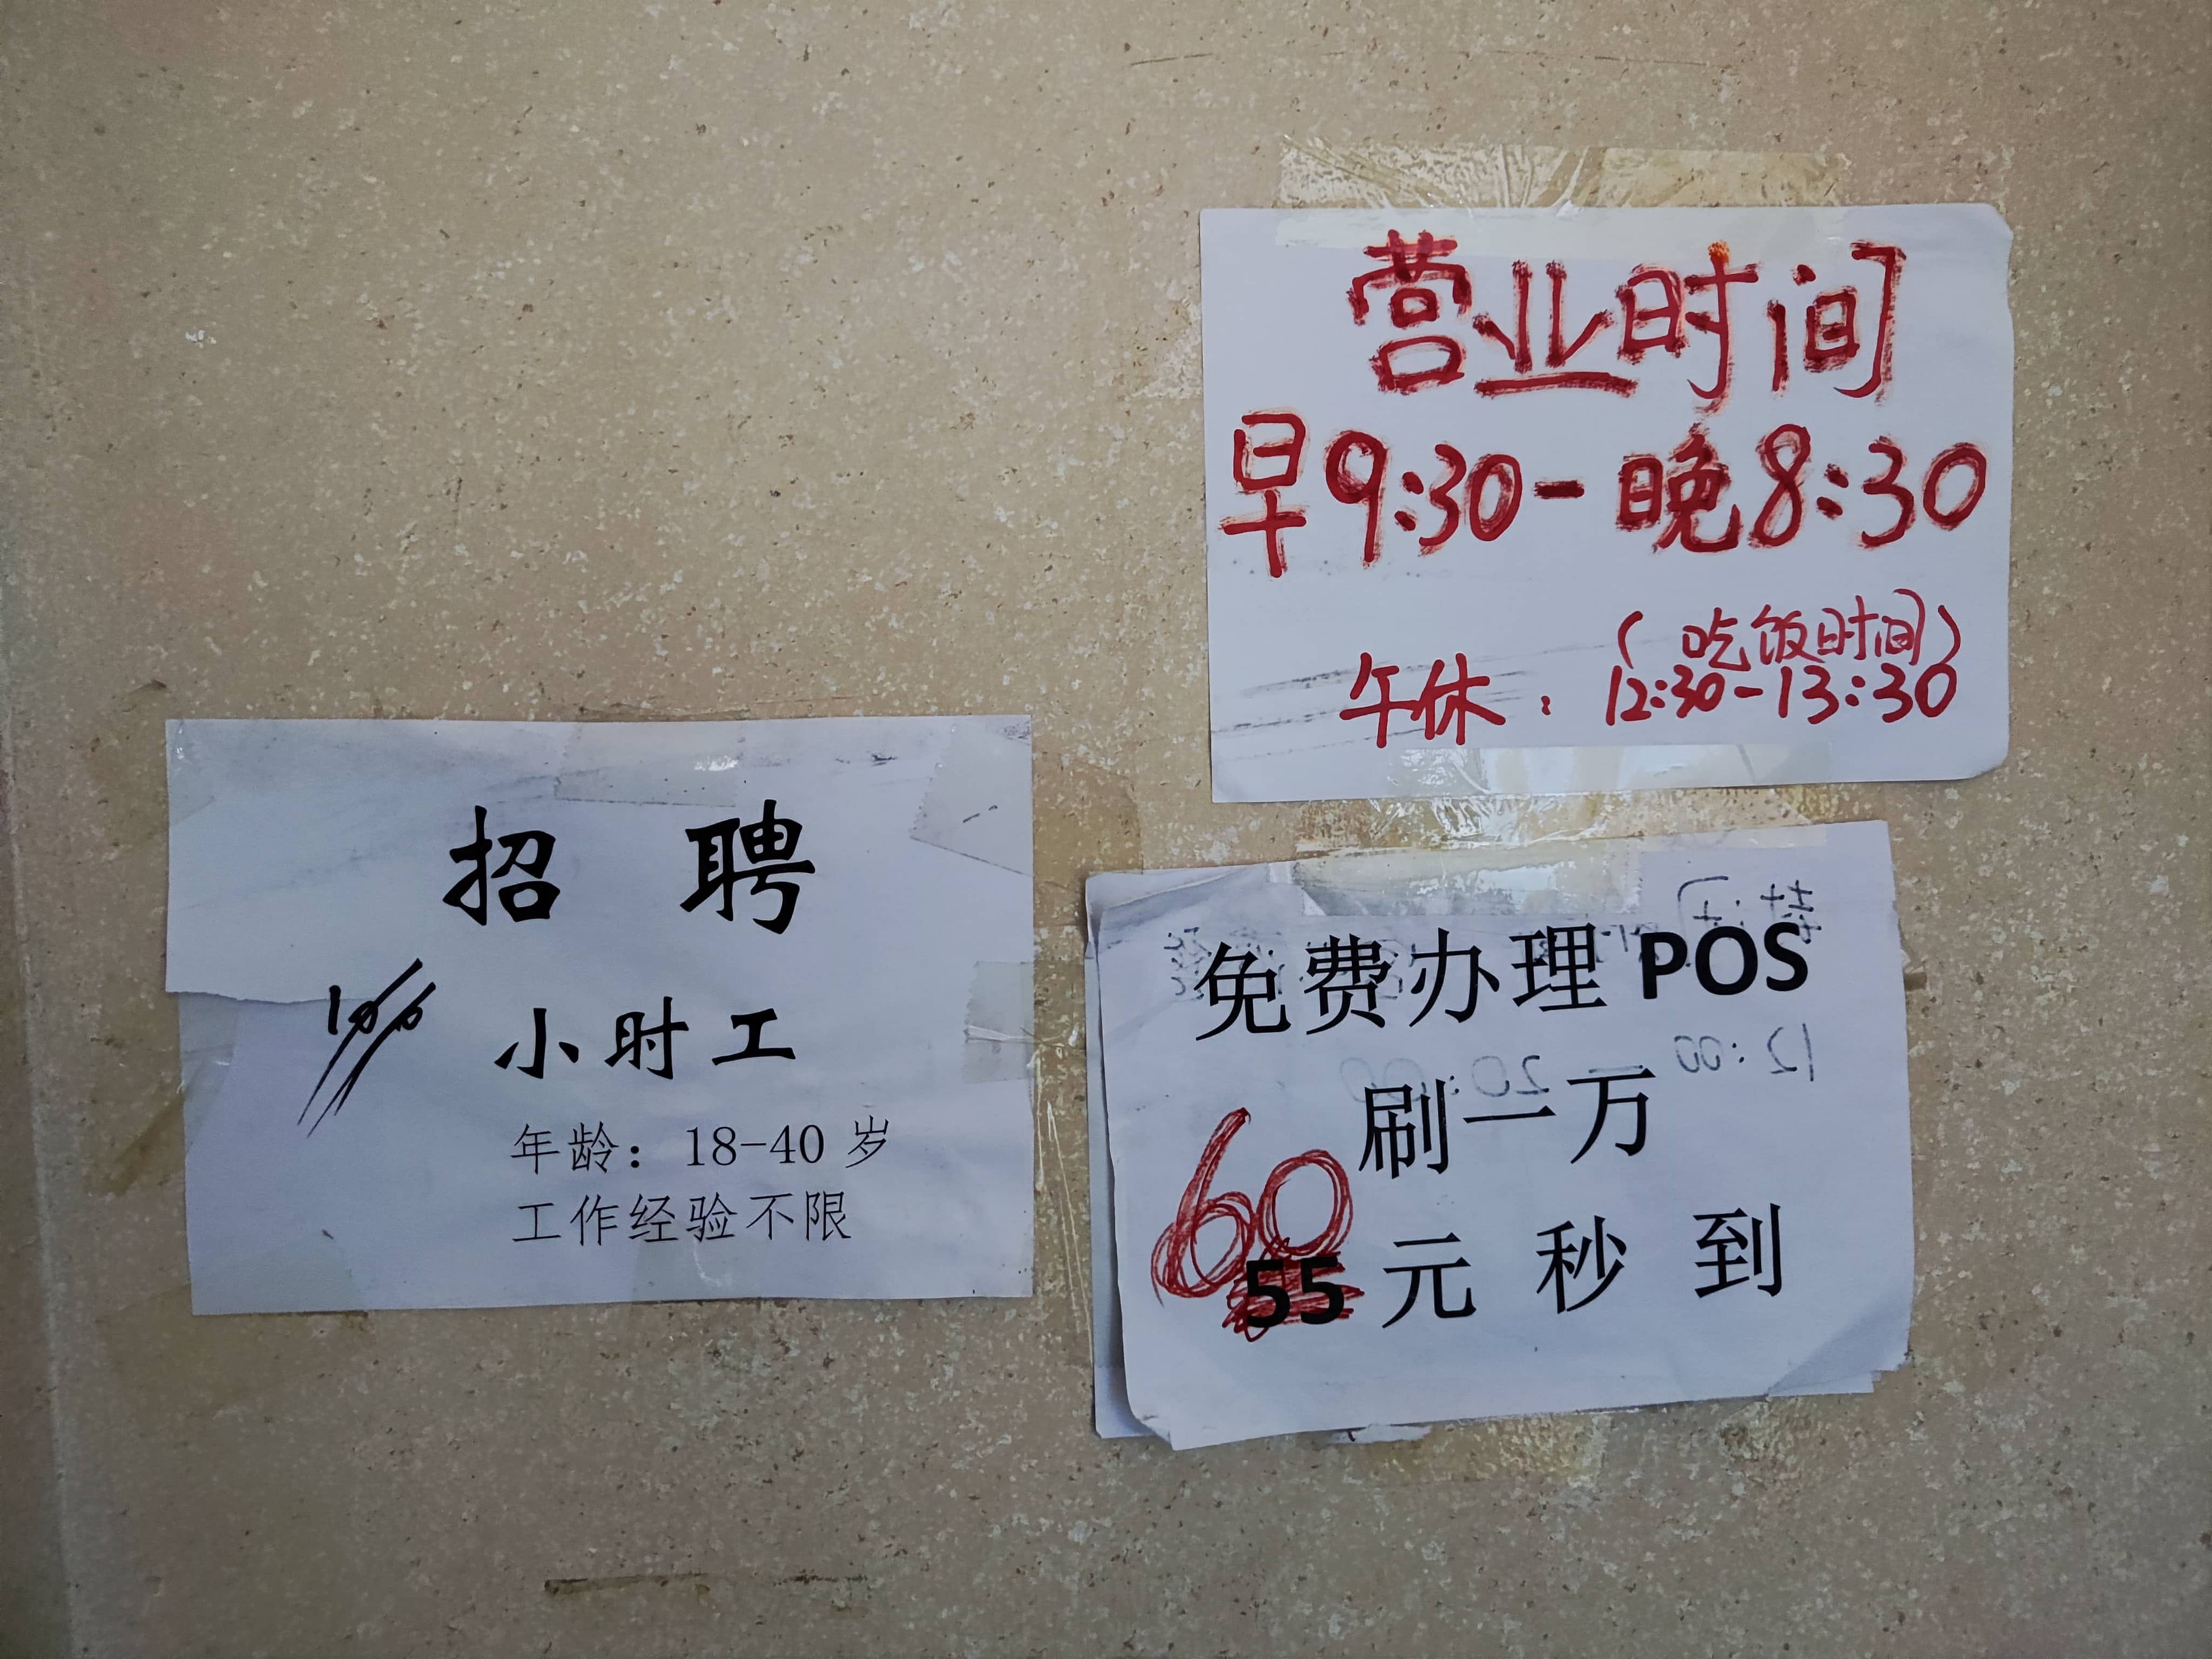 营业时间
早9:30-晚8:30
(吃饭时间)
午休：12:30-13:30
招 聘
小时工
年龄：18-40岁
工作经验不限
免费办理POS
刷一万
60
55元 秒 到
12:00 — 20:00